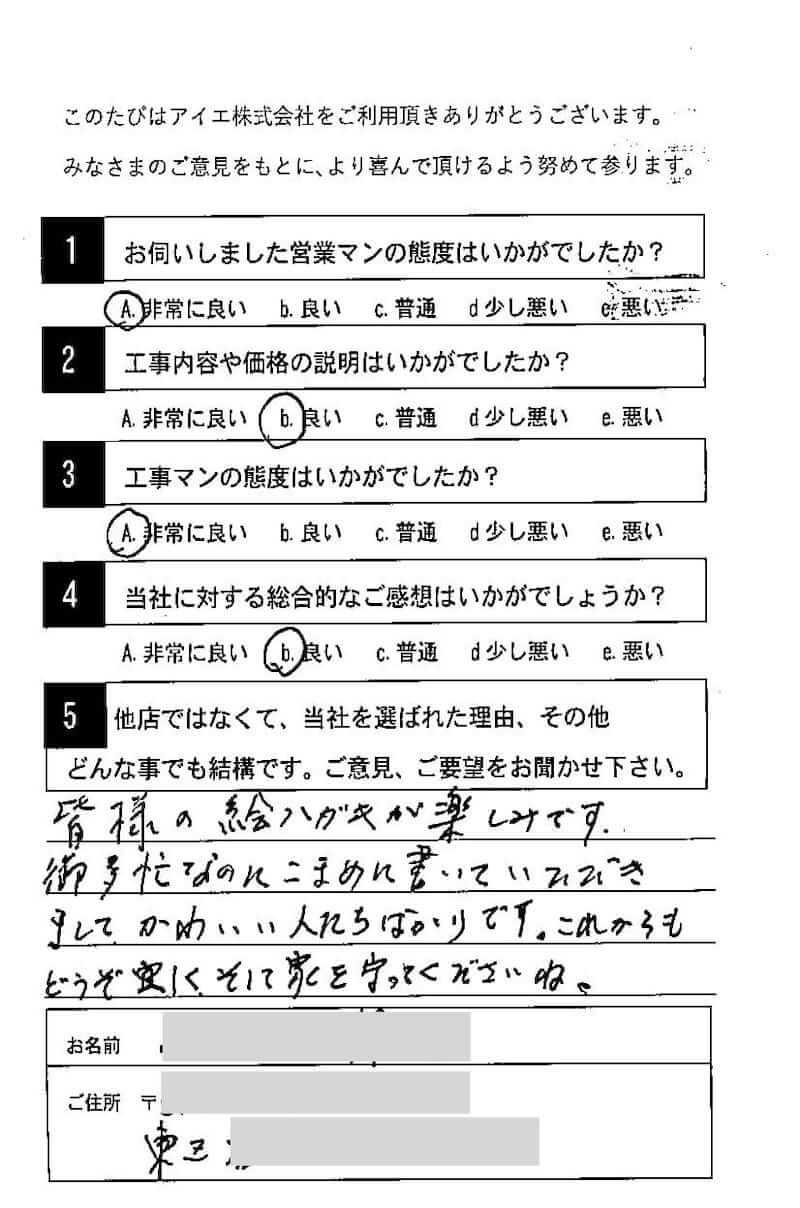 このたびはアイエ株式会社をご利用頂きありがとうございます。
みなさまのご意見をもとに、より喜んで頂けるよう努めて参ります。
1 お伺いしました営業マンの態度はいかがでしたか？
A. 非常に良い b. 良い c. 普通 d 少し悪い e. 悪い
2 工事内容や価格の説明はいかがでしたか？
A. 非常に良い b. 良い c. 普通 d 少し悪い e. 悪い
3 工事マンの態度はいかがでしたか？
A. 非常に良い b. 良い c. 普通 d 少し悪い e. 悪い
4 当社に対する総合的なご感想はいかがでしょうか？
A. 非常に良い b. 良い c. 普通 d 少し悪い e. 悪い
5 他店ではなくて、当社を選ばれた理由、その他
どんな事でも結構です。ご意見、ご要望をお聞かせ下さい。
皆様の絵ハガキが楽しみです。
御多忙なのにこまめに書いていただき
まして かわいい人たちばかりです。これからも
どうぞ宜しく、そして家を守ってくださいね。
お名前
ご住所 〒
東区